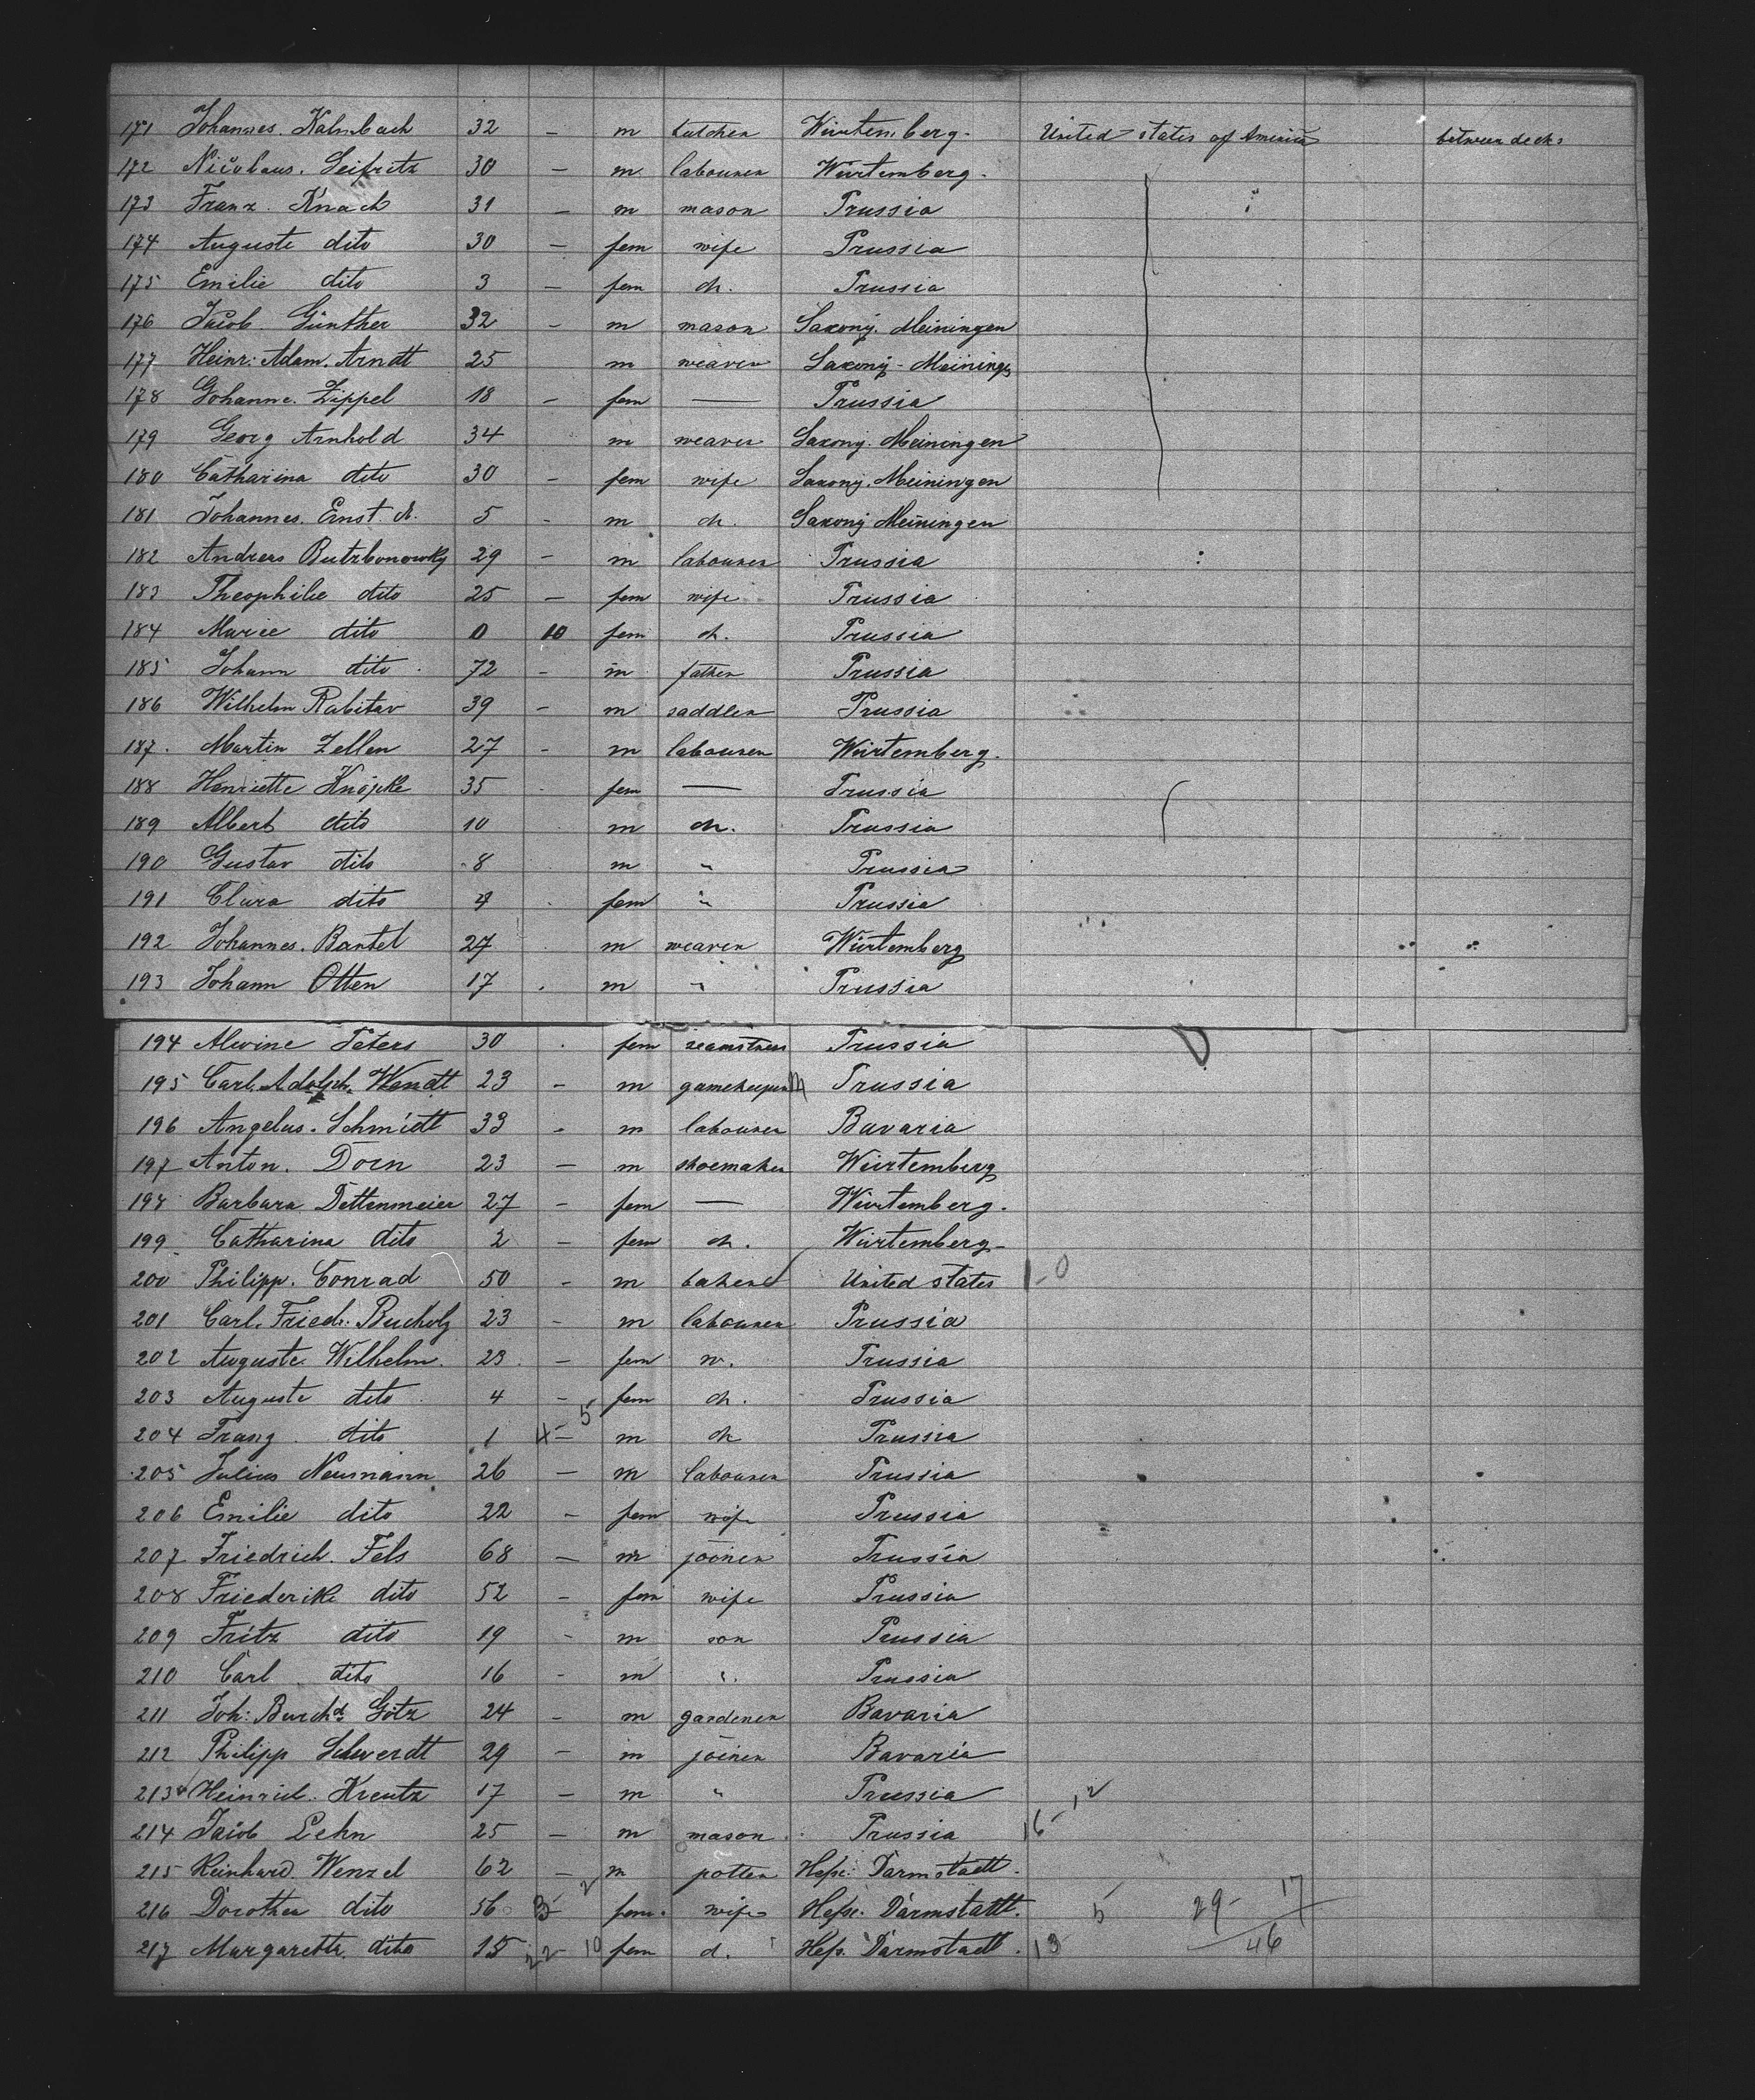 171 Johannes. Kalmbach 32 - m butcher Würtemberg. United states of America between decks
172 Nicolaus. Seifritz 30 - m labourer Würtemberg.
173 Franz. Knack 31 - m mason Prussia
174 Auguste dito 30 - fem wife Prussia
175 Emilie dito 3 - fem ch. Prussia
176 Jacob. Günther 32 - m mason Saxony. Meiningen
177 Heinr: Adam. Arndt 25 m weaver Saxony - Meiningen
178 Johanne. Zippel 18 - fem — Prussia
179 Georg Arnhold 34 m weaver Saxony. Meiningen
180 Catharina dito 30 - fem wife Saxony. Meiningen
181 Johannes. Ernst. d. 5 - m ch. Saxony Meiningen
182 Andreas Butzbonowsky 29 - m labourer Prussia
183 Theophilie dito 25 - fem wife Prussia
184 Marie dito 0 10 fem ch. Prussia
185 Johann dito 72 - m father Prussia
186 Wilhelm Rabitav 39 - m saddler Prussia
187. Martin Zeller 27 - m labourer Würtemberg.
188 Henriette Knöpke 35 fem — Prussia
189 Albert dito 10 m ch. Prussia
190 Gustav dito 8 m " Prussia
191 Clara dito 4 fem " Prussia
192 Johannes. Bantel 27 m weaver Würtemberg
193 Johann Otten 17 m " Prussia
194 Alwine Peters 30 fem seamstress Prussia
195 Carl. Adolph. Wendt 23 - m gamekeeper Prussia
196 Angelus. Schmidt 33 - m labourer Bavaria
197 Anton. Dorn 23 - m shoemaker Würtemberg
198 Barbara Dettenmeier 27 - fem — Würtemberg.
199 Catharina dito 2 - fem ch. Würtemberg -
200 Philipp. Conrad 50 - m baker United states 1-0
201 Carl. Friedr. Bucholz 23 - m labourer Prussia
202 Auguste. Wilhelm. 23 - fem w. Prussia
203 Auguste dito 4 - fem ch. Prussia
204 Franz dito 1 4 - 5 m ch Prussia
205 Julius Neumann 26 - m labourer Prussia
206 Emilie dito 22 - fem wife Prussia
207 Friedrich. Fels 68 - m joiner Prussia
208 Friederike dito 52 - fem wife Prussia
209 Fritz dito 19 - m son Prussia
210 Carl dito 16 - m " Prussia
211 Joh: Burchd. Götz 24 - m gardener Bavaria
212 Philipp Schwerdt 29 - m joiner Bavaria
213 Heinrich. Kreutz 17 - m " Prussia
214 Jacob Lehn 25 - m mason Prussia 16-12
215 Reinhard Wenzel 62 - m potter Hesse: Darmstadt.
216 Dorothea dito 56 3- 2 fem. wife Hesse. Darmstadt. 5 29- 17
217 Margaretta. dito 15 22 10 fem d. Hess. Darmstadt. 13 46